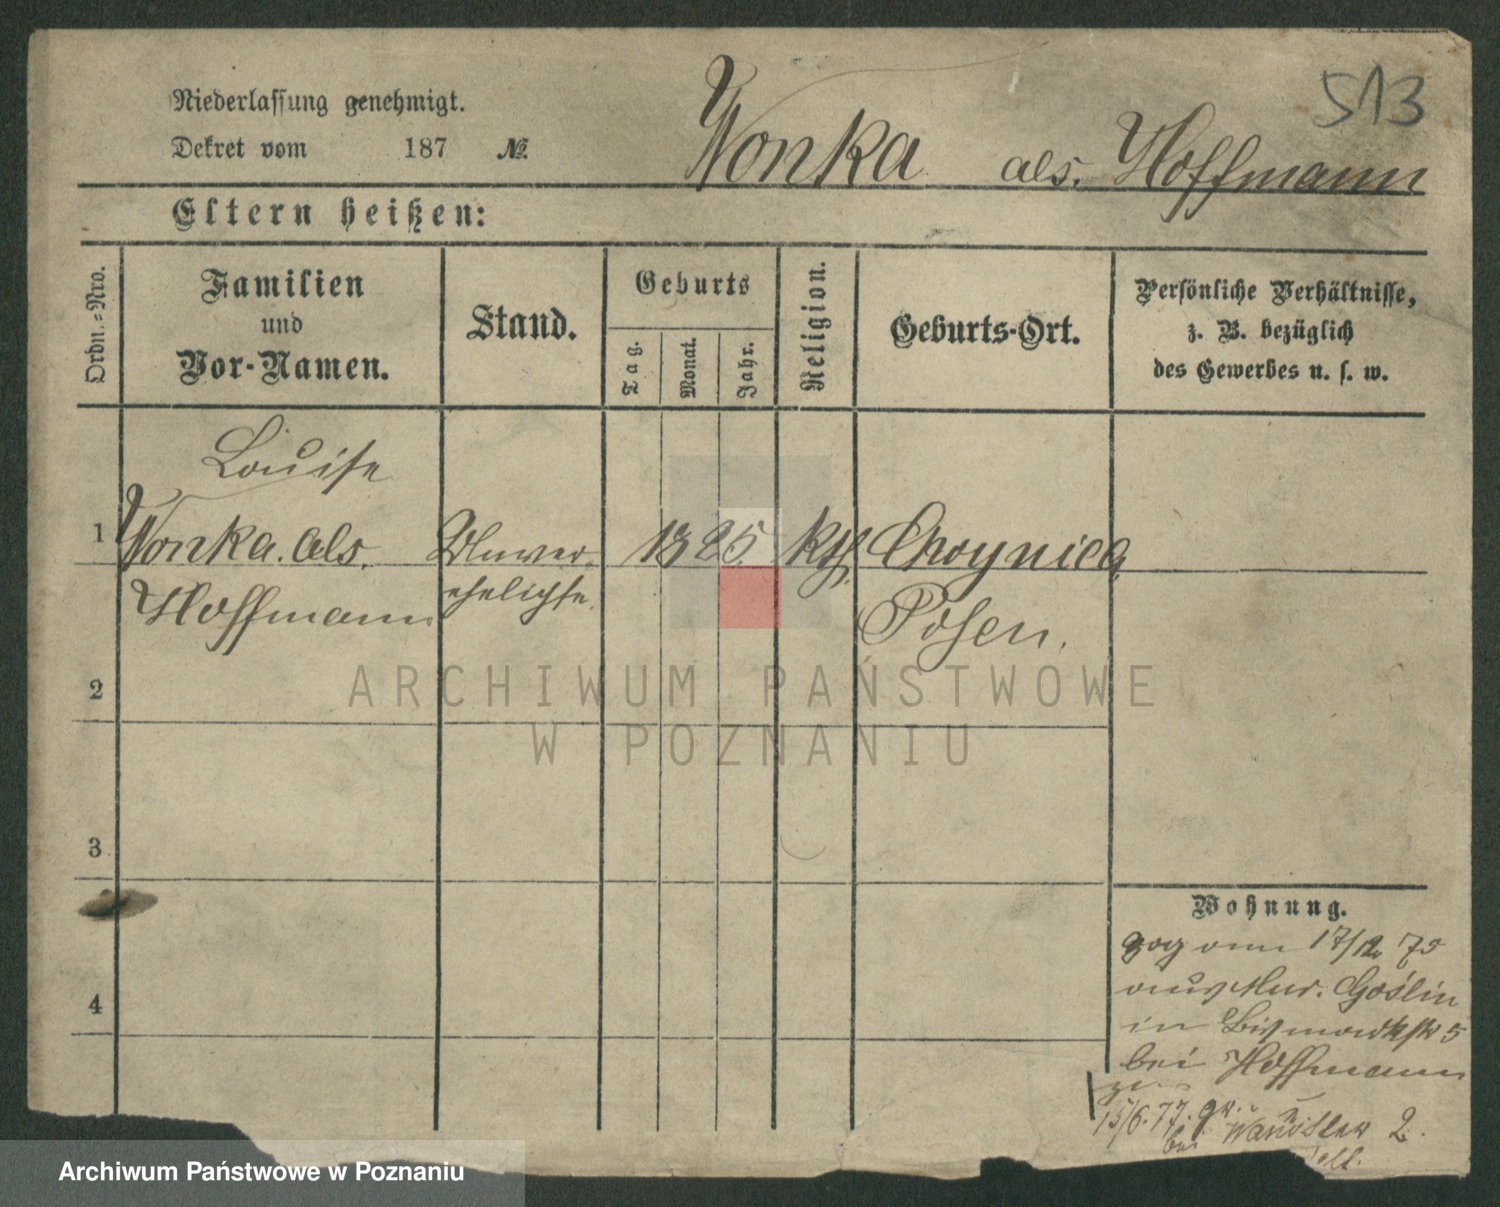 513
Niederlassung genehmigt.
Dekret vom 187 №
Wonka als. Hoffmann
Eltern heißen:
Ordn.-Nro.
Familien
und
Vor-Namen.
Stand.
Geburts
Tag.
Monat.
Jahr.
Religion.
Geburts-Ort.
Persönliche Verhältnisse,
z. B. bezüglich
des Gewerbes u. s. w.
Louise
1 Wonka. als. Unver- 1825. kth. Choynica
Hoffmann ehelichte. Posen.
2
3
4
Wohnung.
zog am 17/12 75
aus Mur. Goślin
in Bismarckstr 5
bei Hoffmann
15/6. 77. gr.
bei 2.
ARCHIWUM PAŃSTWOWE
W POZNANIU
Archiwum Państwowe w Poznaniu